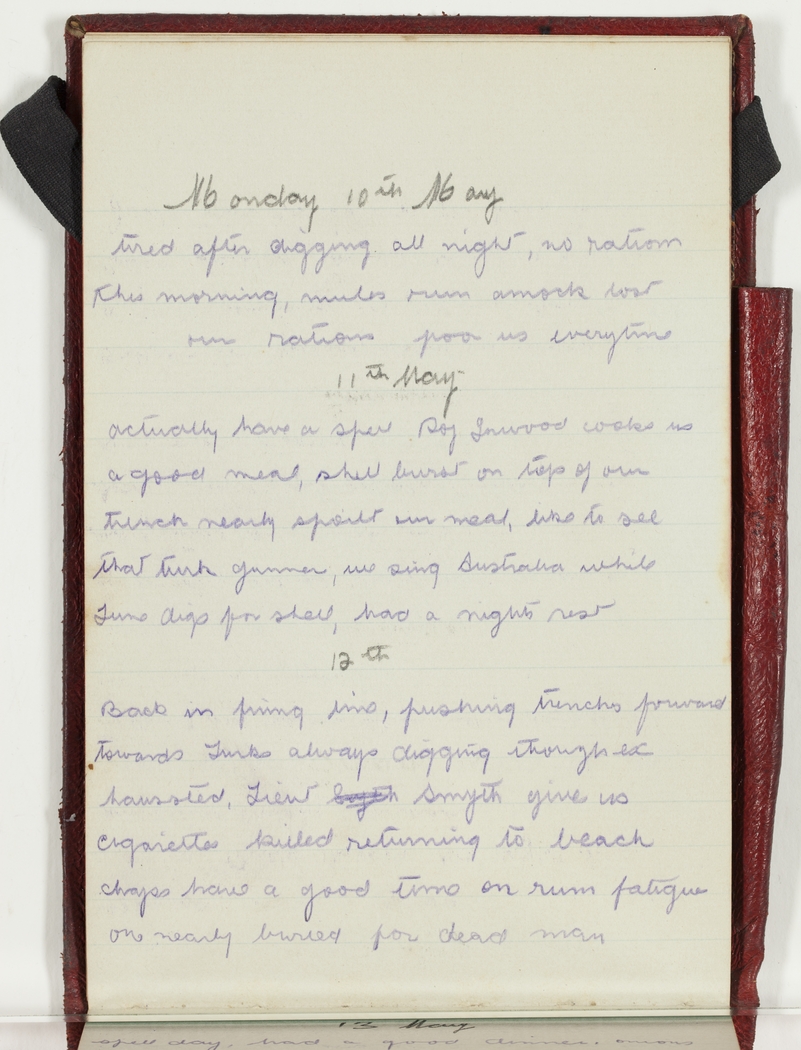 Monday 10th May
tired after digging all night, no rations
this morning, mules run amock lost
our rations poor us everytime
11th May
actually have a spell Inwood cooks us
a good meal, shell burst on top of our
trench nearly spoilt our meal, like to see
that turk gunner, we sing Australia while
digs for shell, had a nights rest
12th
Back in firing line, pushing trenches forward
towards Turks always digging though ex
hausted, Lieut Smyth give us
cigarettes killed returning to beach
chaps have a good time on rum fatigue
one nearly buried for dead man
13 May
spell day, had a good dinner.